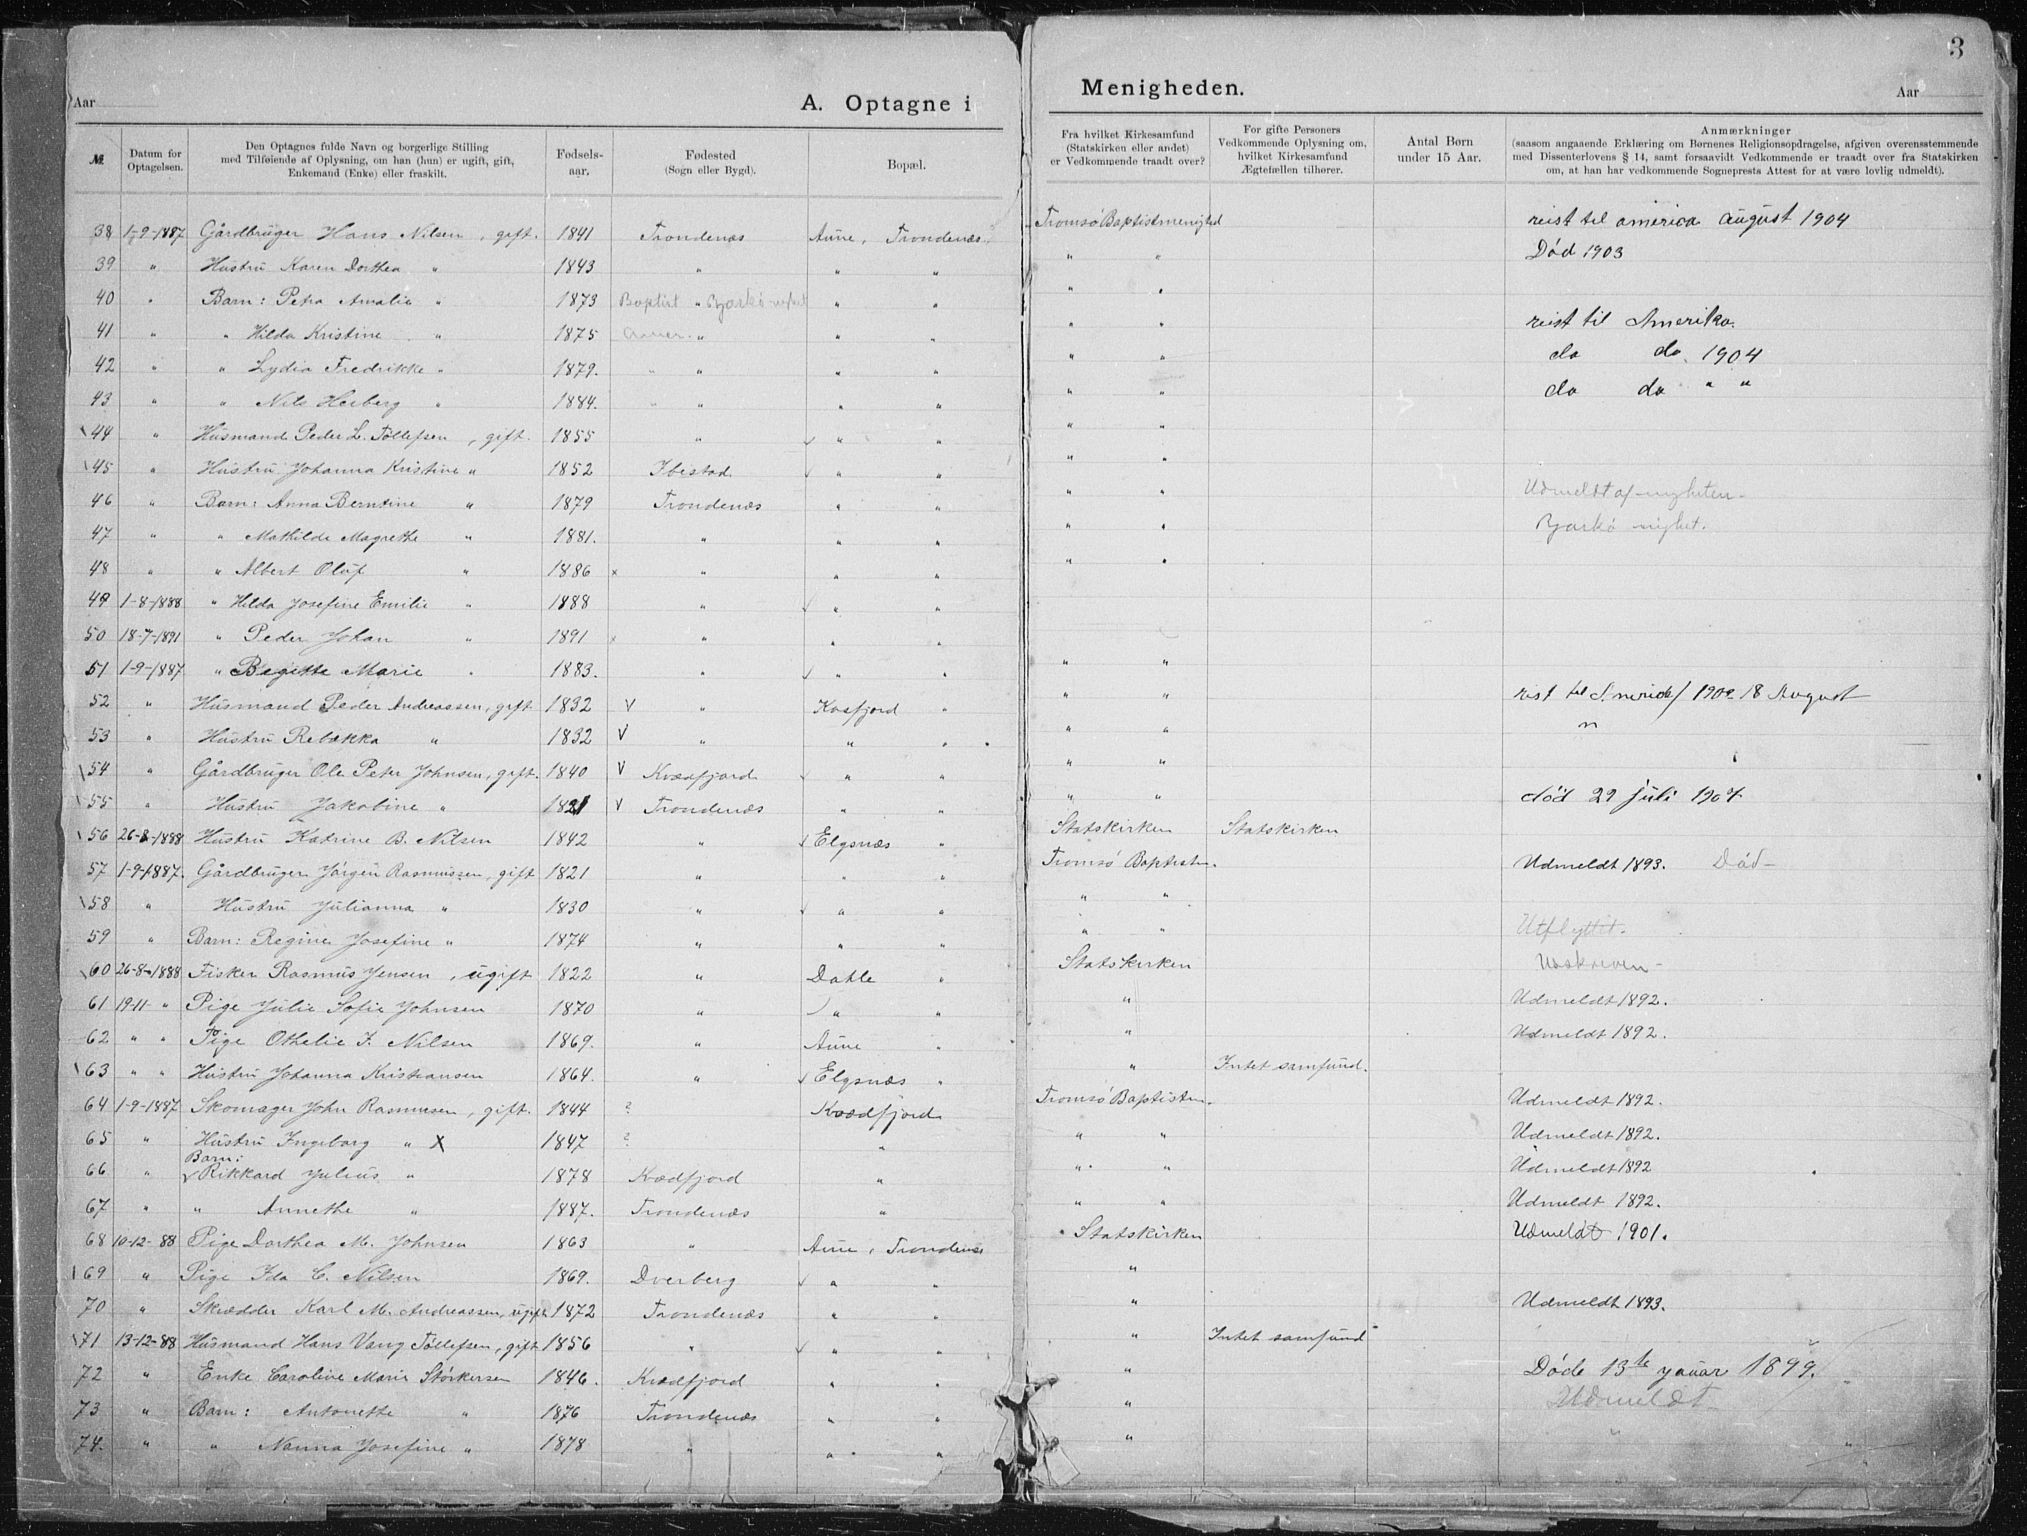 3
Aar A. Optagne i Menigheden. Aar
№ | Datum for Optagelsen. | Den Optagnes fulde Navn og borgerlige Stilling med Tilføiende af Oplysning, om han (hun) er ugift, gift, Enkemand (Enke) eller fraskilt. | Fødsels-aar. | Fødested (Sogn eller Bygd). | Bopæl. | Fra hvilket Kirkesamfund (Statskirken eller andet) er Vedkommende traadt over? | For gifte Personers Vedkommende Oplysning om, hvilket Kirkesamfund Ægtefællen tilhører. | Antal Børn under 15 Aar. | Anmærkninger (saasom angaaende Erklæring om Børnenes Religionsopdragelse, afgiven overensstemmende med Dissenterlovens § 14, samt forsaavidt Vedkommende er traadt over fra Statskirken om, at han har vedkommende Sogneprests Attest for at være lovlig udmeldt).
38 1-9-1887 Gårdbruger Hans Nilsen, gift. 1841 Trondenæs Aune, Trondenæs. Tromsø Baptistmenighed reist til america august 1904
39 " Hustru Karen Dorthea " 1843 " " " " " Død 1903
40 " Barn: Petra Amalie " 1873 Baptist " " " " "
41 " " Hilda Kristine " 1875 " " " " " reist til Amerika.
42 " " Lydia Fredrikke " 1879. " " " " " " do do. 1904
43 " " Nils Herberg " 1884. " " " " " " do do " "
\44 " Husmand Peder L. Tøllefsen, gift. 1855 " √ " " " "
\45 " Hustru Johanna Kristine " 1852 Ibestad √ " " " "
46 " Barn: Anna Berntine " 1879 Trondenæs " " " " Udmeldt af
47 " " Mathilde Magrethe " 1881. " " " " "
48 " " Albert Oluf " 1886 x " " " " "
49 1-8-1888 " Hilda Josefine Emilie " 1888 " √ " "
50 18-7-1891 " Peder Johan " 1891 x " " "
51 1-9-1887 " Begitte Marie " 1883. " √ " " " "
52 " Husmand Peder Andreassen, gift 1832 V " Kasfjord " " " 18 August
53 " Hustru Rebekka " 1832 V " " " " " "
\54 " Gårdbruger Ole Peter Johnsen, gift. 1840 V Kvædfjord √ " " " "
\55 " Hustru Jakobine " 1821 V Trondenæs " " " " død 29 juli 1904
\56 26-8-1888 Hustru Katrine B. Nilsen 1842 " √ Elgsnæs " Statskirken Statskirken
57 1-9-1887. Gårdbruger Jørgen Rasmussen, gift 1821 " " " Tromsø Baptistm. Udmeldt 1893. Død-
\58 " Hustru Julianna " 1830 " √ " " " "
59 " Barn: Regine Josefine " 1874 " " " " " Utflyttet.
\60 26-8-1888 Fisker Rasmus Jensen, ugift 1822 " Dale " Statskirken
61 19-11 " Pige Julie Sofie Johnsen 1870 " " " " Udmeldt 1892.
62 " " Pige Othelie J. Nilsen 1869. " Aune " " Udmeldt 1892.
\63 " " Hustru Johanna Kristiansen 1864. " √ Elgsnæs " " Intet samfund.
64 1-9-1887 Skomager John Rasmusen, gift. 1844 ? Kvædfjord Tromsø Baptistm. Udmeldt 1892.
65 " Hustru Ingeborg " X 1847 ? " " " Udmeldt 1892.
Barn:
66 " √ Rikkard Julius " 1878 Kvædfjord " " " Udmeldt 1892
67 " " Annethe " 1887. Trondenæs " " " Udmeldt 1892.
68 10-12-88 Pige Dorthea M. Johnsen 1863 " Aune, Trondenæs Statskirken Udmeldt 1901.
\69 " Pige Ida C. Nilsen 1869. Dverberg √ " " "
70 " Skrædder Karl M. Andreassen, ugift. 1872 Trondenæs " " " Udmeldt 1893.
\71 13-12-88 Husmand Hans Vang Tøllefsen, gift 1856 " √ " " " Intet samfund
72 " Enke Caroline Marie Størkersen 1846. Kvædfjord " " " Døde 13te januar 1899.
73 " Barn: Antonette " 1876 Trondenæs " " " Udmeldt
74. " " Nanna Josefine " 1878 " " " " " "